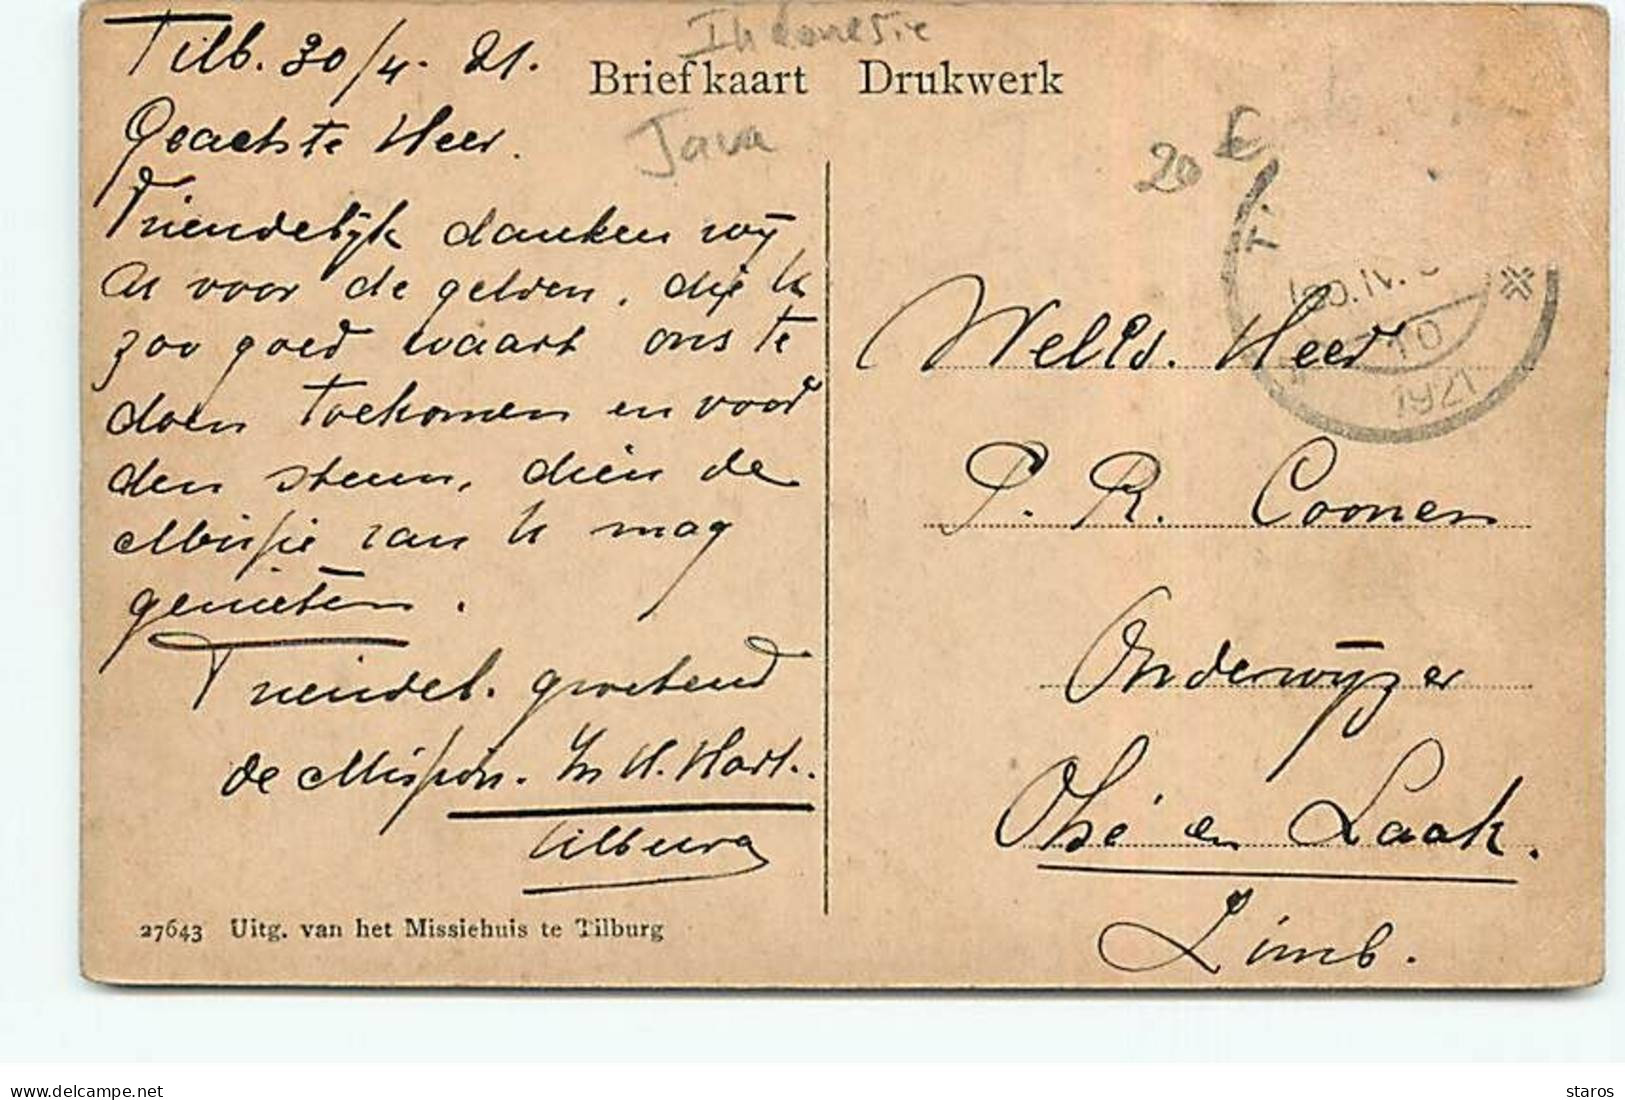 Indonesie
Tilb. 30/4. 21.
Briefkaart Drukwerk
Geachte Heer.
Java
20 €
Vriendelijk danken wij
U voor de gelden, die U
zoo goed waart ons te
doen toekomen en voor
den steun, dien de
Missie van U mag
genieten.
Vriendel. groetend
de Mission. H. Hart.
Tilburg
27643 Uitg. van het Missiehuis te Tilburg
T.
30.IV.
10
1921
WelEd. Heer
P. R. Coonen
Onderwijzer
Ohé en Laak.
Limb.
delcampe.net
staros